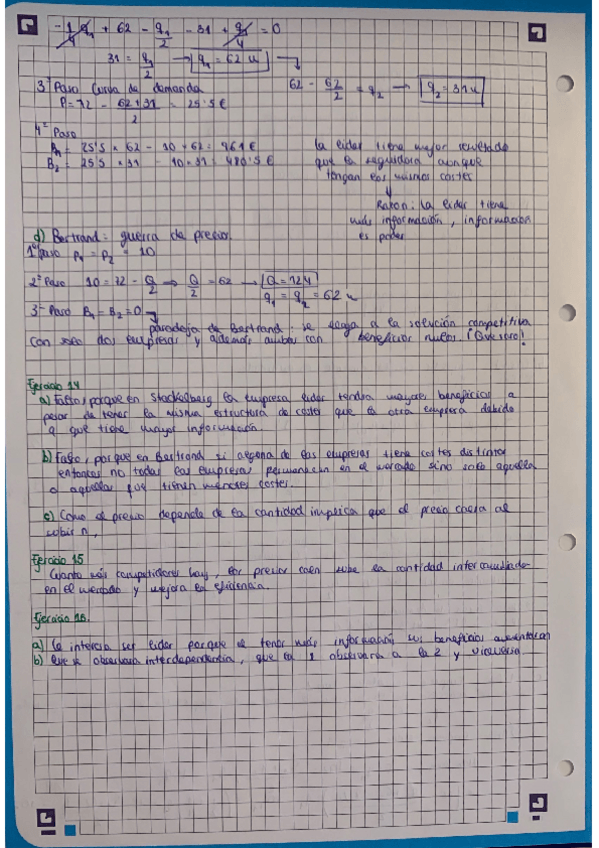 - 1/4 q₁ + 62 - q₁/2 - 31 + q₁/4 = 0
31 = q₁/2 → q₁ = 62 u
62 - 62/2 = q₂ → q₂ = 31 u
3º Paso Curva de demanda
P = 72 - (62+31)/2 = 25'5 €
4º Paso
B₁ = 25'5 × 62 - 10 × 62 = 961 €
B₂ = 25'5 × 31 - 10 × 31 = 480'5 €
la lider tiene mejor resultado
que la seguidora aunque
tengan los mismos costes
Razon: la lider tiene
más información, informacion
es poder
d) Bertrand: guerra de precios.
1er paso P₁ = P₂ = 10
2º Paso 10 = 72 - Q/2 → Q/2 = 62 → Q = 124
q₁ = q₂ = 62 u
3er Paso B₁ = B₂ = 0
paradoja de Bertrand: se llega a la solución competitiva
con solo dos empresas y además ambas con beneficios nulos.
Ejercicio 14
a) Falso, porque en Stackelberg la empresa lider tendra mayores beneficios a
pesar de tener la misma estructura de costes que la otra empresa debido
a que tiene mayor información.
b) Falso, porque en Bertrand si alguna de las empresas tiene costes distintos
entonces no todas las empresas permanecen en el mercado sino solo aquella
o aquellas que tienen menores costes.
c) Como el precio depende de la cantidad implica que el precio caera al
subir n,
Ejercicio 15
Cuanto más competidores hay, los precios caen sube la cantidad intercambiada
en el mercado y mejora la eficiencia.
Ejercicio 16.
a) le interesa ser lider porque al tener más información sus beneficios aumentaran
b) que se observara interdependencia, que la 1 observara a la 2 y viceversa